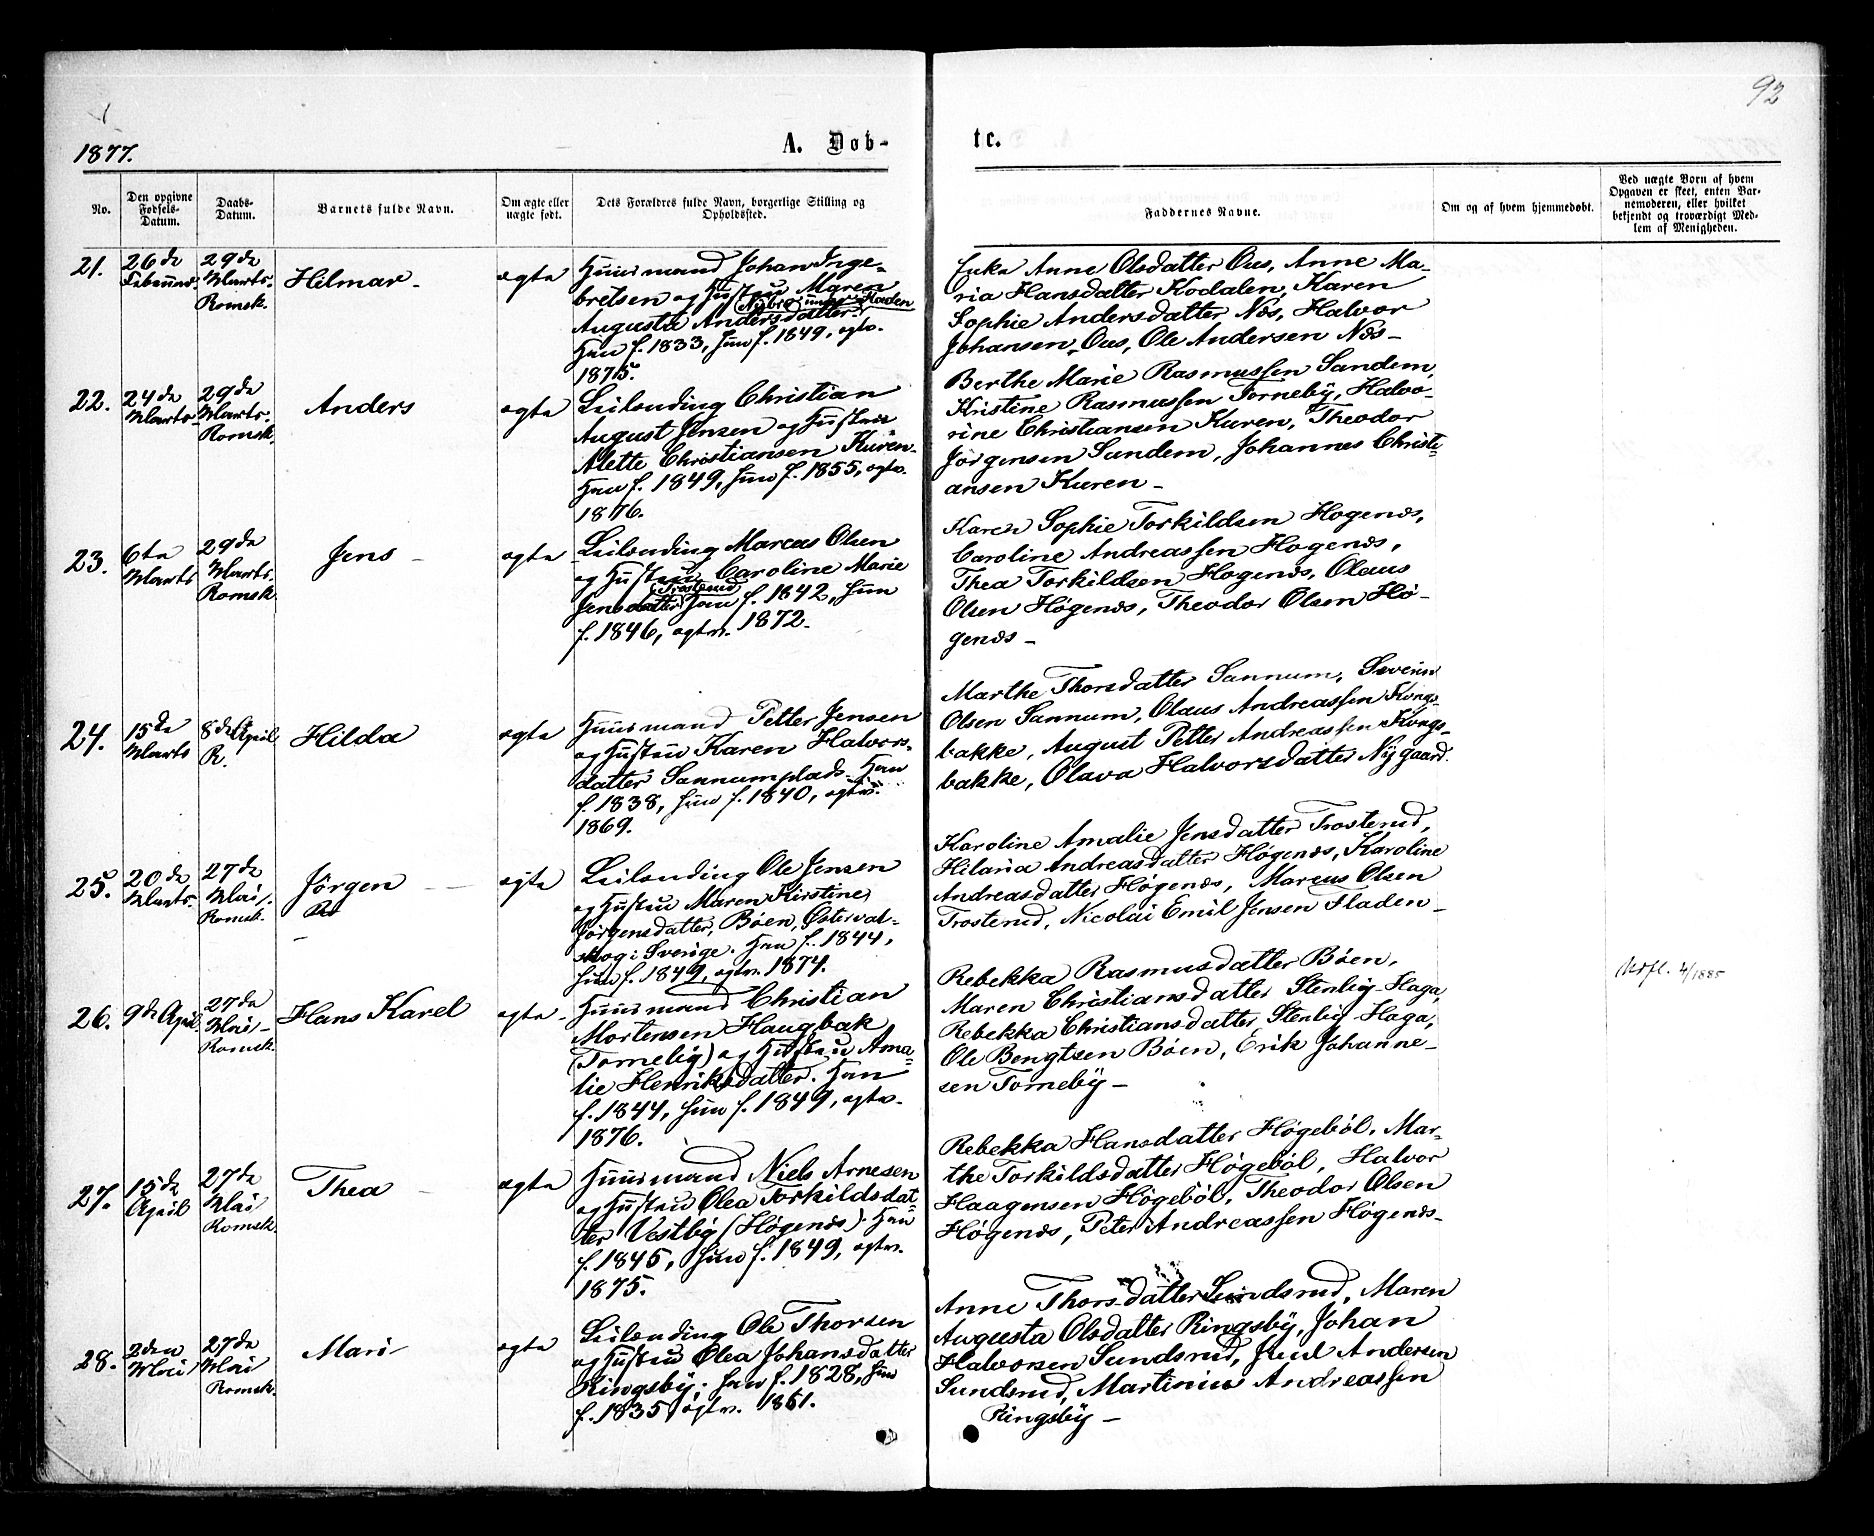 92
1877.
A. Døb-
te.
No.
Den opgivne Fødsels-Datum.
Daabs-Datum.
Barnets fulde Navn.
Om ægte eller uægte født.
Dets Forældres fulde Navn, borgerlige Stilling og Opholdssted.
Faddernes Navne.
Om og af hvem hjemmedøbt.
Ved uægte Born af hvem Opgaven er skeet, enten Barnemoderen, eller hvilket bekjendt og troværdigt Medlem af Menigheden.
21.
26de
29de Marts. Romsk.
Hilmar -
ægte
Huusmand Johan Inge-
bretsen og Hustru Maren
Augusta Andersdatter
Han f. 1833, hun f. 1849, egtv.
1875.
Enke Anne Olsdatter Ous, Anne Ma-
ria Hansdatter Kodalen, Karen
Sophie Andersdatter Næs, Halvor
Johansen Ous, Ole Andersen Næs -
22.
24de Marts
29de Marts. Romsk.
Anders
egte
Leilending Christian
August Jensen og Hustru
Alette Christiansen Kuren.
Han f. 1849, hun f. 1855, egtv.
1876.
Berthe Marie Rasmussen Sandem,
Kristine Rasmussen Torneby, Halvo-
rine Christiansen Kuren, Theodor
Jörgensen Sandem, Johannes Christi-
ansen Kuren -
23.
6te Marts
29de Marts. Romsk.
Jens -
egte
Leilending Marcus Olsen
og Hustru Caroline Marie
Trosterud
Jensdatter Han f. 1842, hun
f. 1846, egtv. 1872.
Karen Sophie Torkildsen Hogenæs,
Caroline Andreassen Hogenæs,
Thea Torkildsen Hogenæs, Olaus
Olsen Högenæs, Theodor Olsen Hö-
genæs -
24.
15de Marts
8de April R.
Hilda
egte
Huusmand Petter Jensen
og Hustru Karen Halvors-
datter Sannumplads. Han
f. 1838, hun f. 1840, egtv.
1869.
Marthe Thorsdatter Sannum, Severin
Olsen Sannum, Olaus Andreassen Kongs-
bakke, August Petter Andreassen Kongs-
bakke, Olava Halvorsdatter Nygaard.
25.
20de Marts.
27de Mai. Romsk.
Jörgen
egte
Leilending Ole Jensen
og Hustru Maren Kirstine
Jörgensdatter, Böen, Österval-
skog i Sverige. Han f. 1844,
hun f. 1849, egtv. 1874.
Karoline Amalie Jensdatter Trosterud,
Hilaria Andreasdatter Högenæs, Karoline
Andreasdatter Högenæs, Marcus Olsen
Trosterud, Nicolai Emil Jensen Fladen -
26.
9de April
27de Mai - Romsk.
Hans Karel
egte
Huusmand Christian
Mortensen Haugbak
(Torneby) og Hustru Ama-
lie Henriksdatter. Han
f. 1844, hun f. 1849, egtv.
1876.
Rebekka Rasmusdatter Böen,
Maren Christiansdatter Stenby-Haga,
Rebekka Christiansdatter Stenby-Haga,
Ole Bengtsen Böen, Erik Johanne-
sen Torneby -
Utfl. 4/1885
27.
15de April
27de Mai Romsk.
Thea -
ægte
Huusmand Niels Arnesen
og Hustru Olea Torkildsdat-
ter Vestby (Högenæs). Han
f. 1845, hun f. 1849, egtv.
1875.
Rebekka Hansdatter Högeböl, Mar-
the Torkildsdatter Högeböl, Halvor
Haagensen Högeböl, Theodor Olsen
Högenæs, Peter Andreassen Högenæs -
28.
2den Mai
27de Mai Romsk.
Mari
egte
Leilending Ole Thorsen
og Hustru Olea Johansdatter
Ringsby; han f. 1828, hun
f. 1835, egtv. 1861.
Anne Thorsdatter Sundsrud, Maren
Augusta Olsdatter Ringsby, Johan
Halvorsen Sundsrud, Juul Andersen
Sundsrud, Martinius Andreassen
Ringsby -